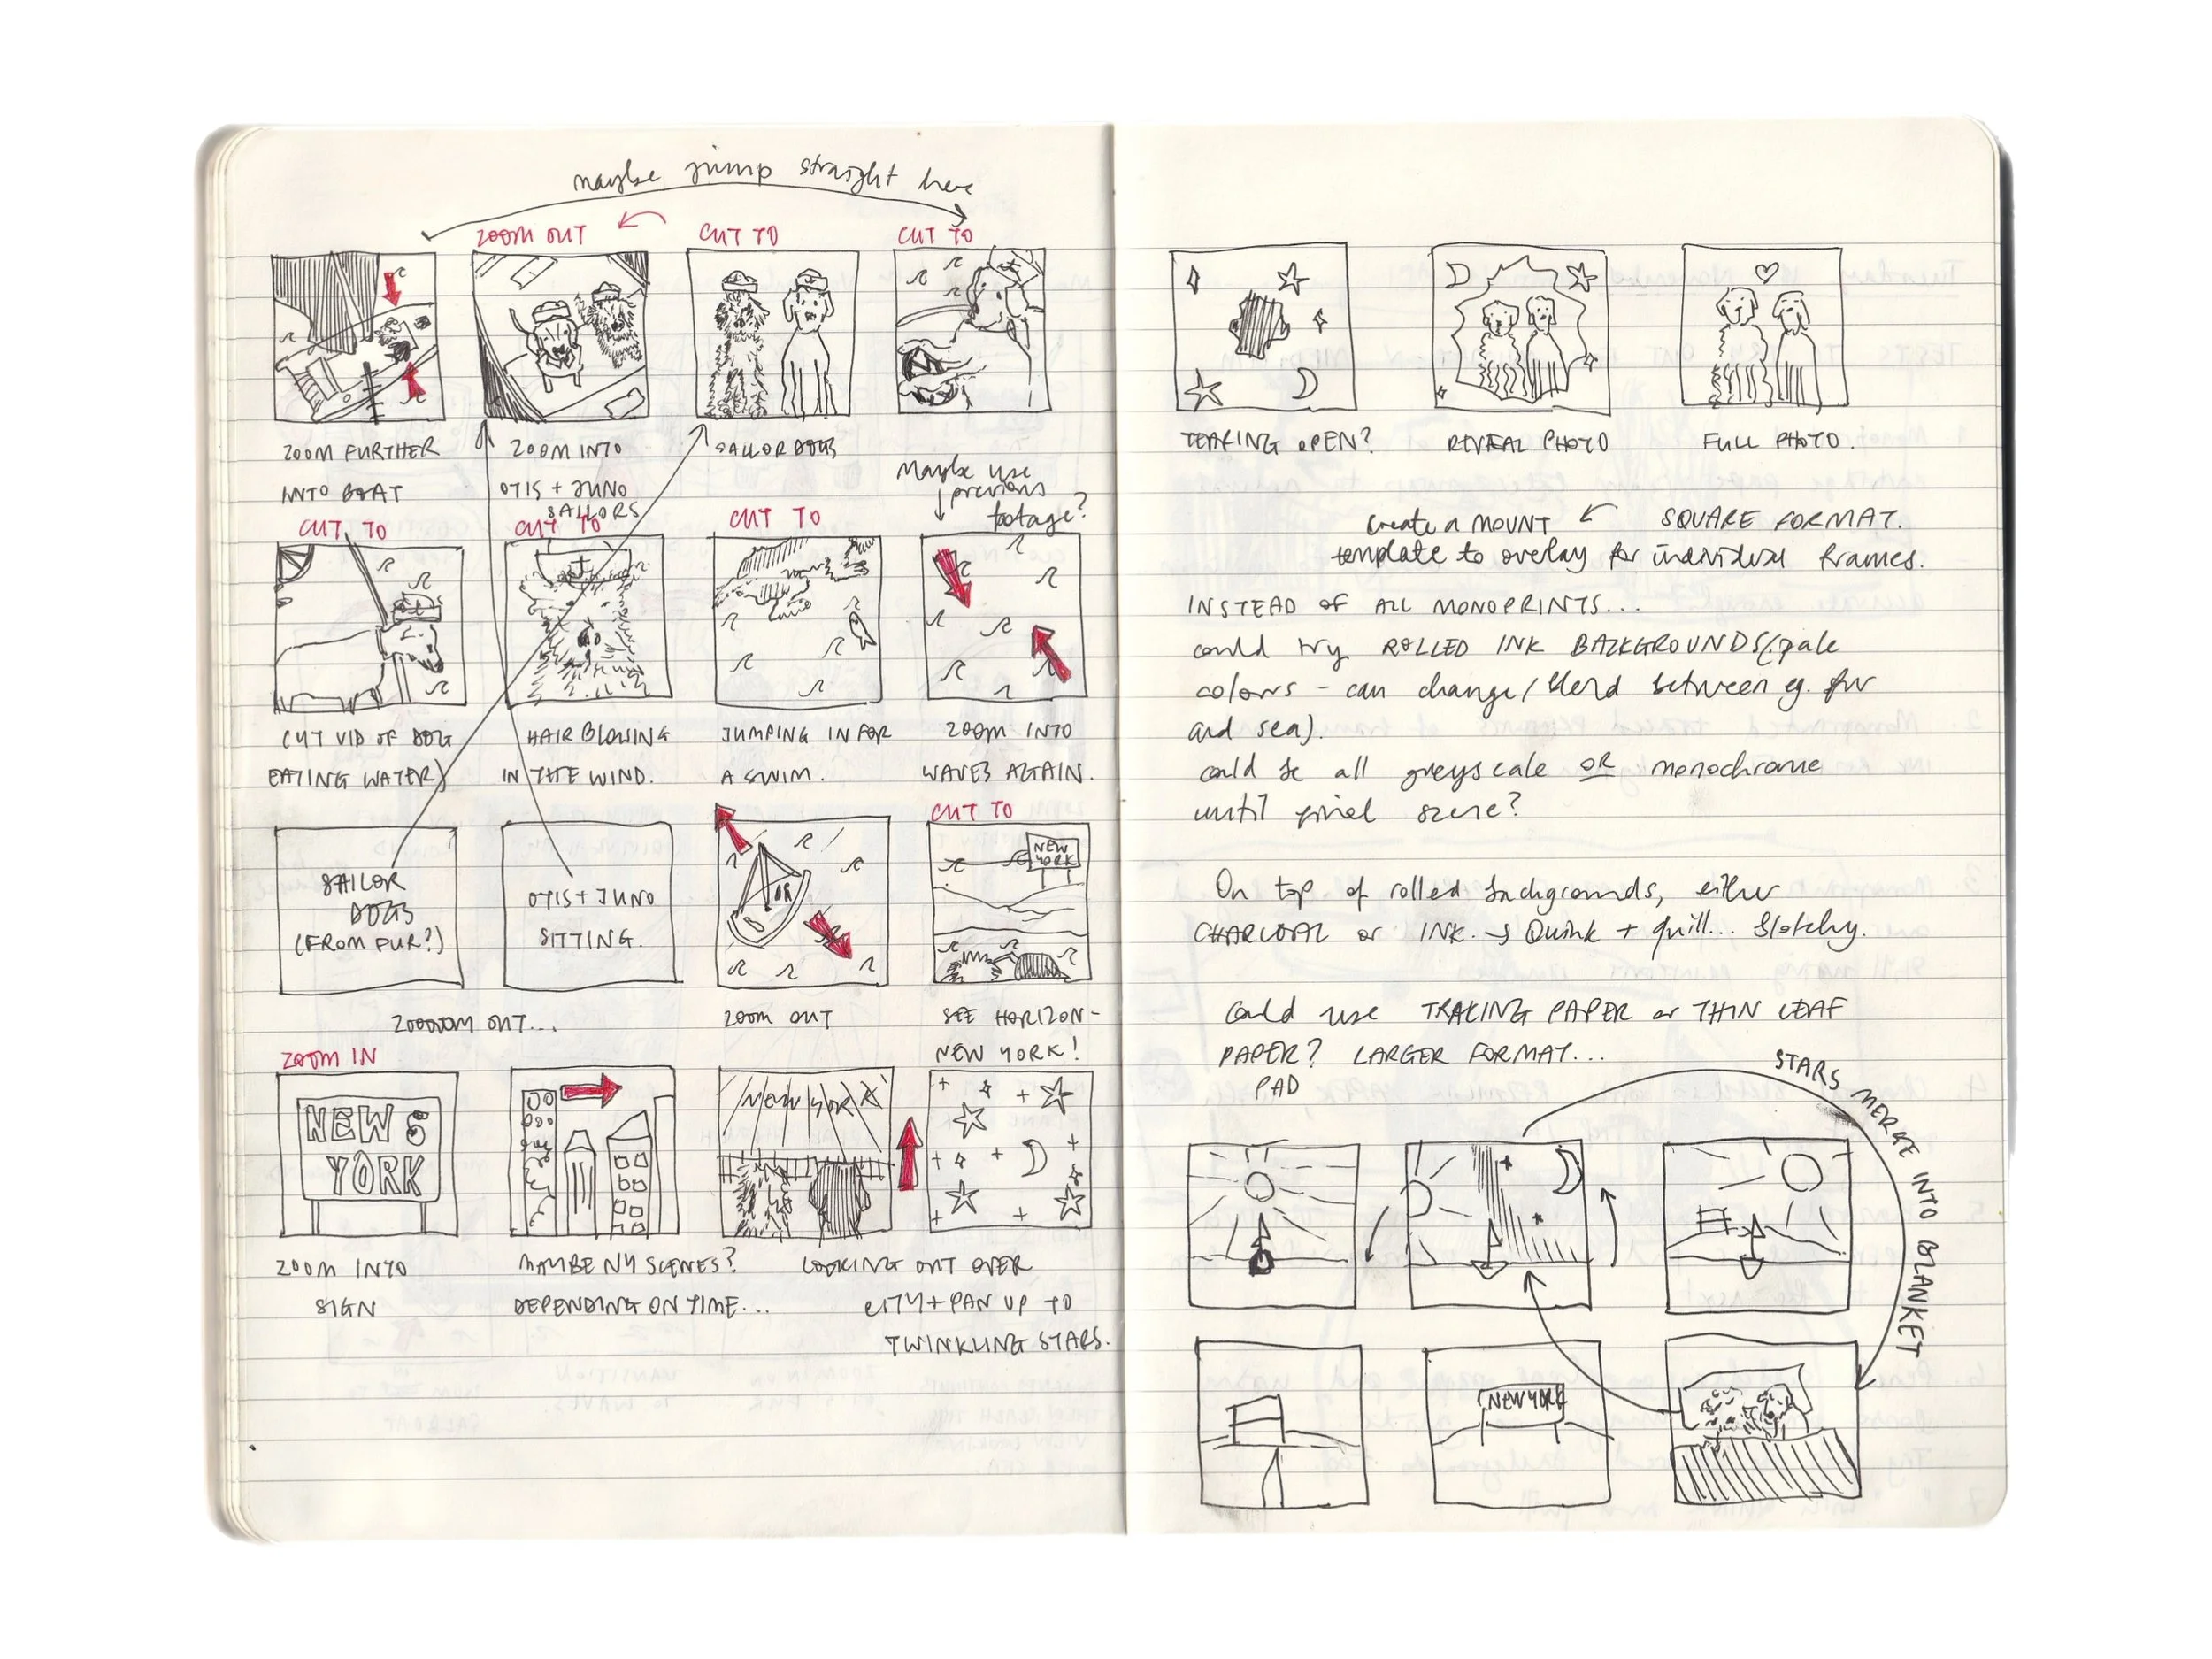 maybe jump straight here
ZOOM OUT
CUT TO
CUT TO
ZOOM FURTHER
INTO BOAT
ZOOM INTO
OTIS + JUNO
SAILORS
SAILOR DOGS
Maybe use
previous
footage?
CUT TO
CUT TO
CUT TO
CUT VID OF DOG
EATING WATER)
HAIR BLOWING
IN THE WIND.
JUMPING IN FOR
A SWIM.
ZOOM INTO
WAVES AGAIN.
CUT TO
SAILOR
DOGS
(FROM FUR?)
OTIS + JUNO
SITTING.
NEW
YORK
ZOOOOOM OUT...
ZOOM OUT
SEE HORIZON-
NEW YORK!
ZOOM IN
NEW
YORK
NEW YORK
ZOOM INTO
SIGN
MAYBE NY SCENES?
DEPENDING ON TIME...
LOOKING OUT OVER
CITY + PAN UP TO
TWINKLING STARS.
TEARING OPEN?
REVEAL PHOTO
FULL PHOTO.
Create a MOUNT ← SQUARE FORMAT.
template to overlay for individual frames.
INSTEAD OF ALL MONOPRINTS...
could try ROLLED INK BACKGROUNDS (pale
colours - can change/blend between eg. fur
and sea).
could be all greyscale OR monochrome
until final scene?
On top of rolled backgrounds, either
CHARCOAL or INK. → Quink + quill... blotchy.
Could use TRACING PAPER or THIN LEAF
PAPER? LARGER FORMAT...
PAD
STARS MERGE INTO BLANKET
NEW YORK